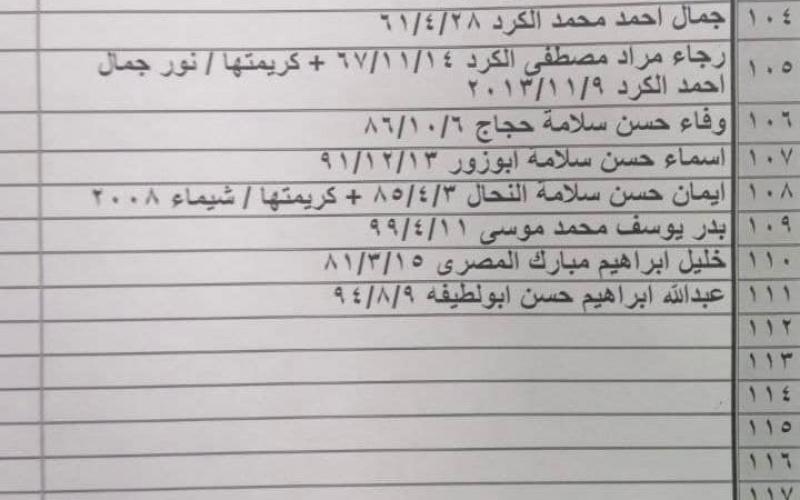 ١٠٤ جمال احمد محمد الكرد ٦١/٤/٢٨
١٠٥ رجاء مراد مصطفى الكرد ٦٧/١١/١٤ + كريمتها / نور جمال
احمد الكرد ٢٠١٣/١١/٩
١٠٦ وفاء حسن سلامة حجاج ٨٦/١٠/٦
١٠٧ اسماء حسن سلامة ابوزور ٩١/١٢/١٣
١٠٨ ايمان حسن سلامة النحال ٨٥/٤/٣ + كريمتها / شيماء ٢٠٠٨
١٠٩ بدر يوسف محمد موسى ٩٩/٤/١١
١١٠ خليل ابراهيم مبارك المصرى ٨١/٣/١٥
١١١ عبدالله ابراهيم حسن ابولطيفه ٩٤/٨/٩
١١٢
١١٣
١١٤
١١٥
١١٦
١١٧